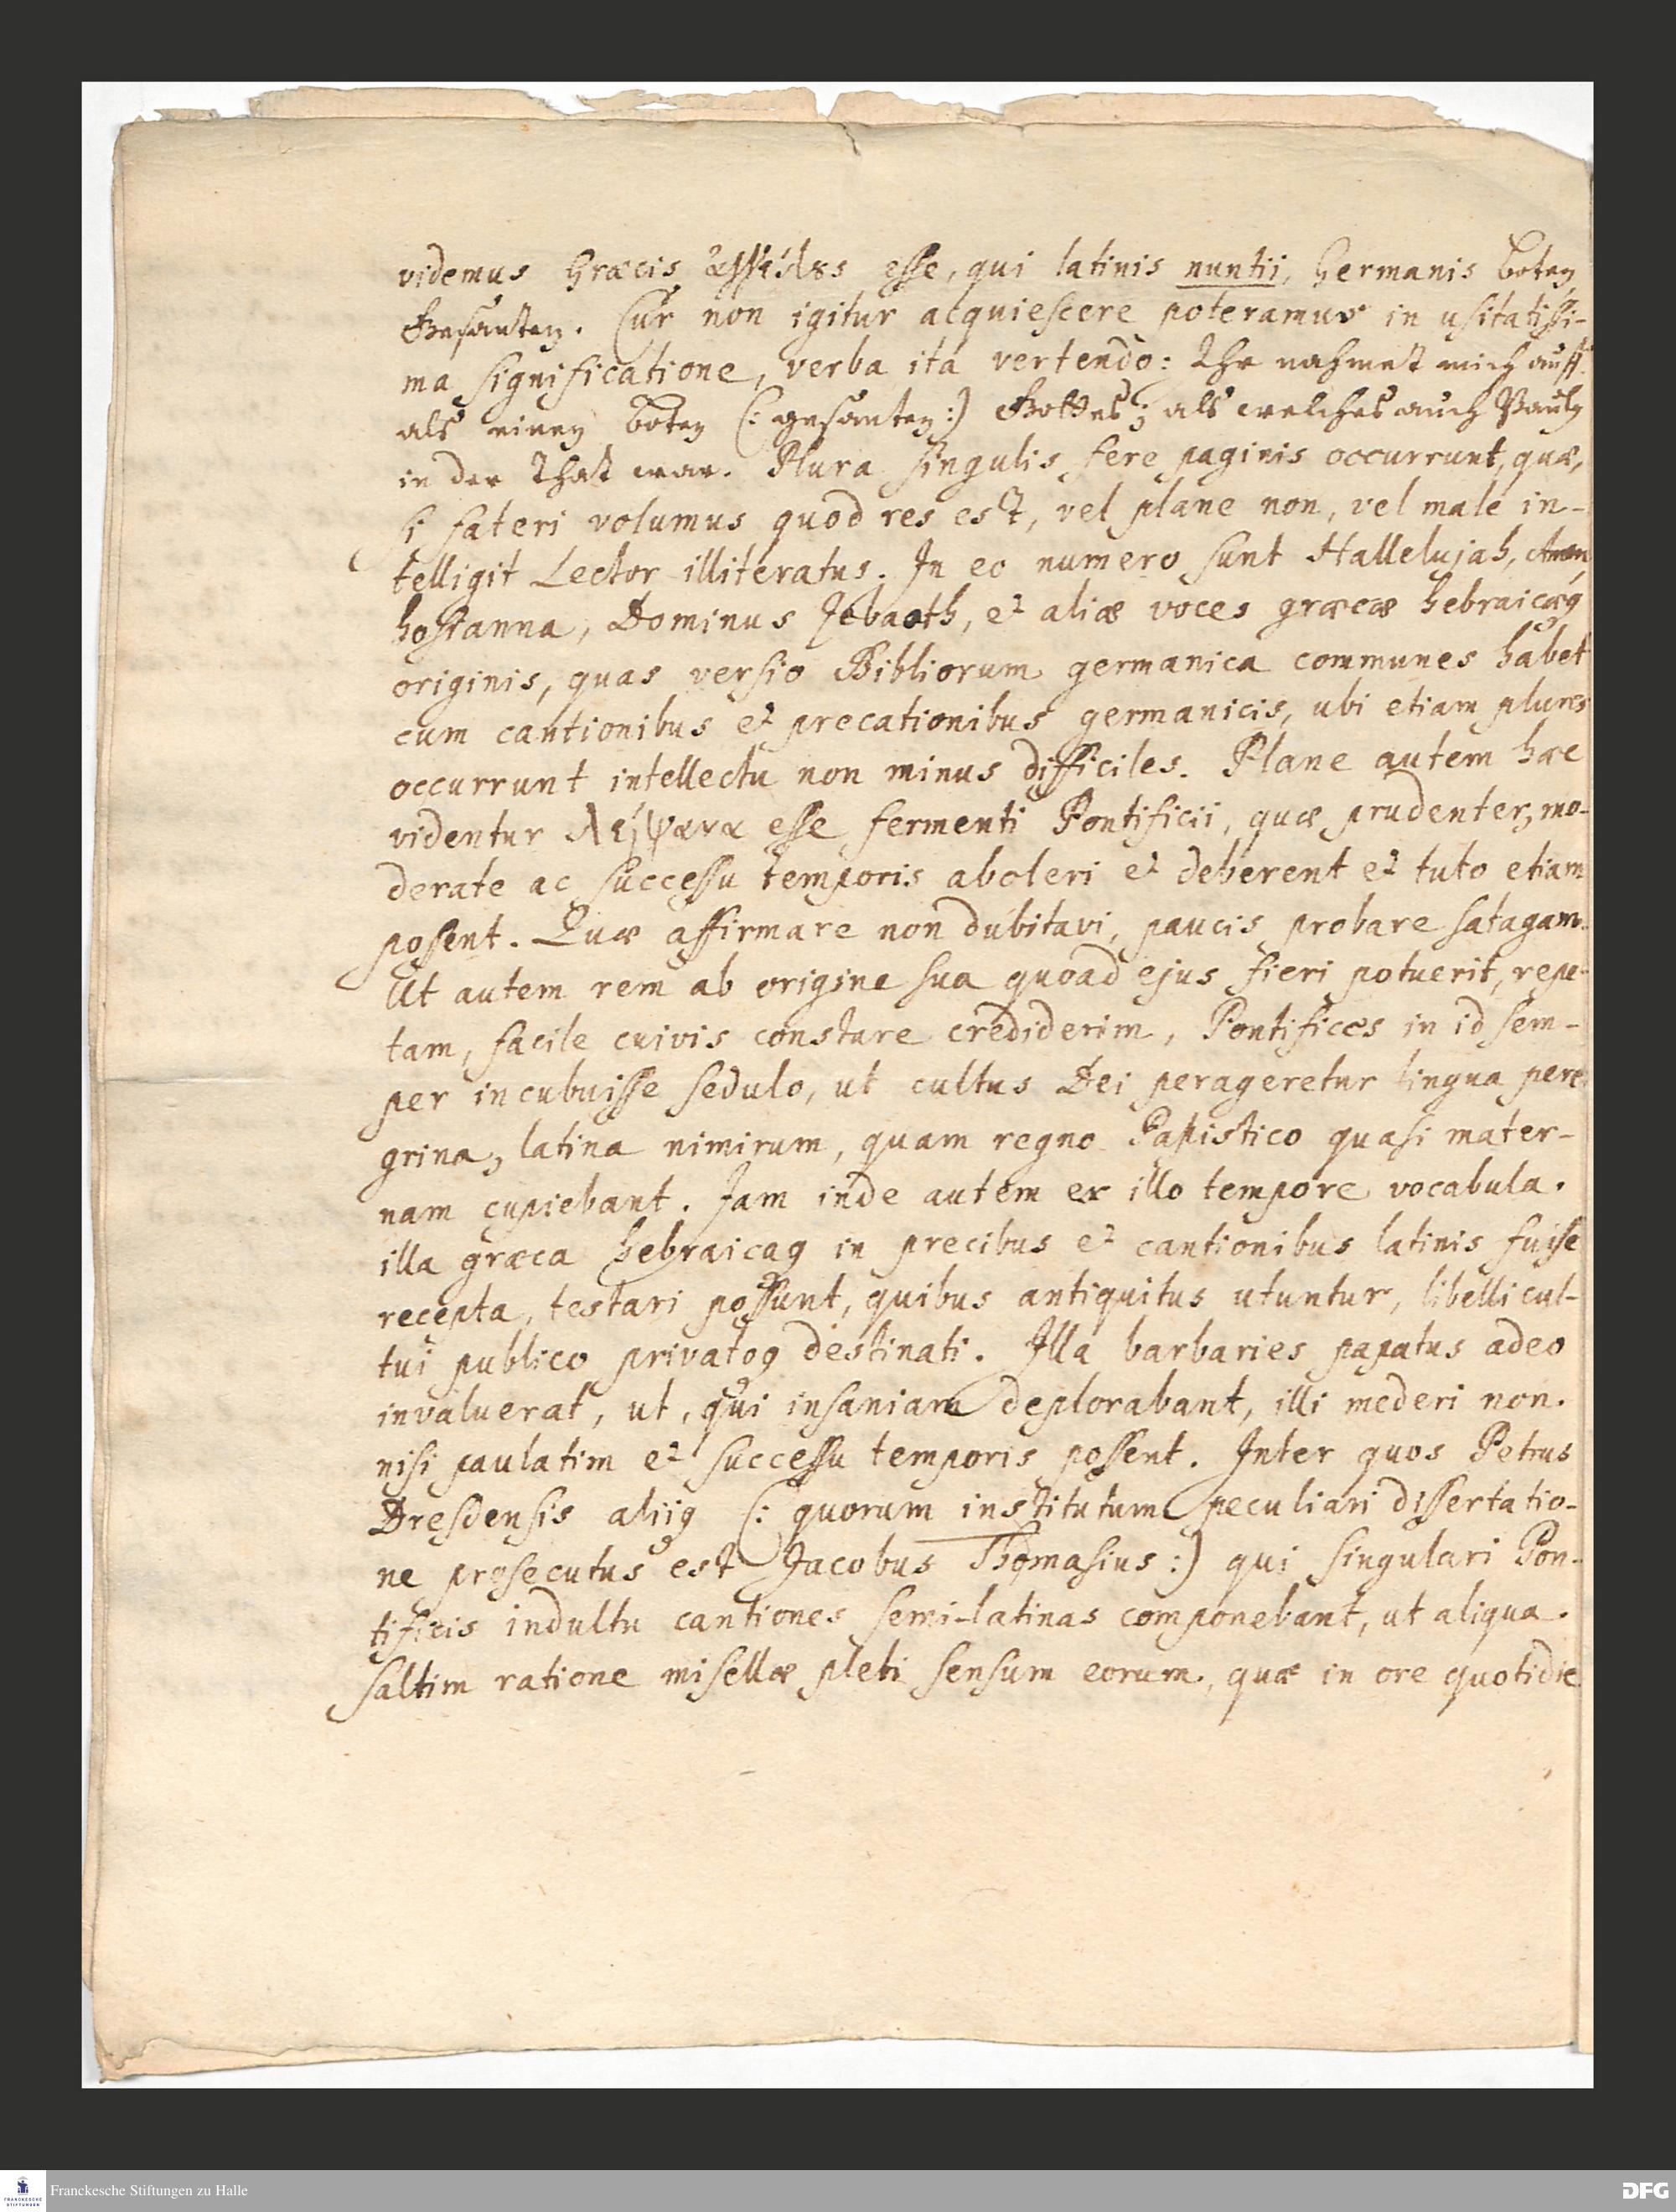 videmus Græcis ἀγγέλȣς esse, qui latinis nuntii, Germanis boten
Gesanten. Cur non igitur acquiescere poteramus in usitatissi-
ma significatione, verba ita vertendo: Ihr nahmet mich auff
als einen boten (: gesanten :) Gottes; als welches auch Paulus
in der That war. Plura singulis fere paginis occurrunt, quæ,
si fateri volumus quod res est, vel plane non, vel male in-
telligit Lector illiteratus. In eo numero sunt Hallelujah, Amen,
hosianna, Dominus Zebaoth, et aliæ voces græcæ hebraicæq
originis, quas versio Bibliorum germanica communes habet
cum cantionibus et precationibus germanicis, ubi etiam plures
occurrunt intellectu non minus difficiles. Plane autem hæc
videntur λείψανα esse fermenti Pontificii, quæ prudenter, mo-
derate ac successu temporis aboleri et deberent et tuto etiam
possent. Quæ affirmare non dubitavi, paucis probare satagam.
Ut autem rem ab origine sua quoad ejus fieri potuerit, repe-
tam, facile cuivis constare crediderim, Pontifices in id sem-
per incubuisse sedulo, ut cultus Dei perageretur lingua pere-
grina, latina nimirum, quam regno Papistico quasi mater-
nam cupiebant. Jam inde autem ex illo tempore vocabula
illa græca hebraicaq in precibus et cantionibus latinis fuisse
recepta, testari possunt, quibus antiquitus utuntur, libelli cul-
tui publico privatoq destinati. Illa barbaries papatus adeo
invaluerat, ut, qui insaniam deplorabant, illi mederi non
nisi paulatim et successu temporis possent. Inter quos Petrus
Dresdensis aliiq (: quorum institutum peculiari dissertatio-
ne prosecutus est Jacobus Thomasius :) qui singulari Pon-
tificis indultu cantiones semi-latinas componebant, ut aliqua
saltim ratione misellæ plebi sensum eorum, quæ in ore quotidie
Franckesche Stiftungen zu Halle
FRANCKESCHE STIFTUNGEN
DFG